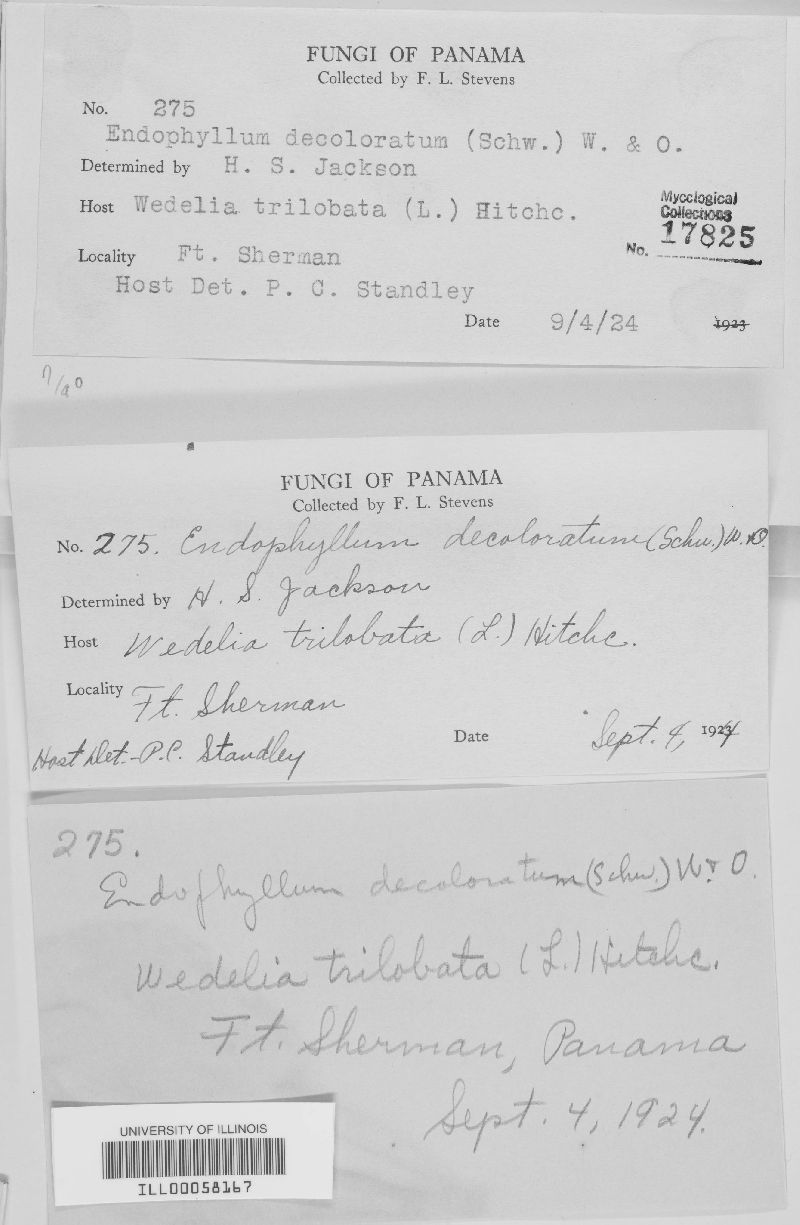 FUNGI OF PANAMA
Collected by F. L. Stevens
No. 275
Endophyllum decoloratum (Schw.) W. & O.
Determined by H. S. Jackson
Host Wedelia trilobata (L.) Hitchc.
Mycological
Collections
No. 17825
Locality Ft. Sherman
Host Det. P. C. Standley
Date 9/4/24 1923
FUNGI OF PANAMA
Collected by F. L. Stevens
No. 275. Endophyllum decoloratum (Schw.) W. & O.
Determined by H. S. Jackson
Host Wedelia trilobata (L.) Hitchc.
Locality Ft. Sherman
Date Sept. 4, 1924
Host Det. - P.C. Standley
275.
Endophyllum decoloratum (Schw.) W & O.
Wedelia trilobata (L.) Hitchc.
Ft. Sherman, Panama
Sept. 4, 1924.
UNIVERSITY OF ILLINOIS
ILL00058167